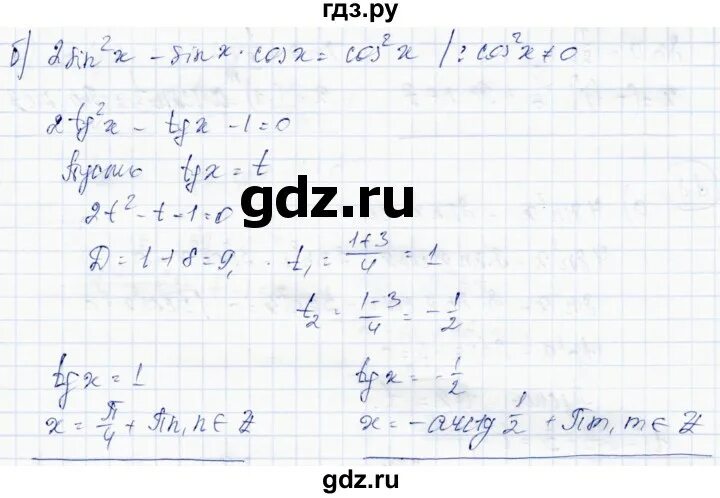 гдз.ру
б) 2sin²x - sinx·cosx = cos²x /:cos²x≠0
2tg²x - tgx - 1 = 0
Пусть tgx = t
2t² - t - 1 = 0
gdz.ru
D = 1+8 = 9, t₁ = (1+3)/4 = 1
t₂ = (1-3)/4 = -1/2
tgx = 1 tgx = -1/2
x = π/4 + πn, n ∈ Z x = -arctg 1/2 + πm, m ∈ Z
gdz.ru